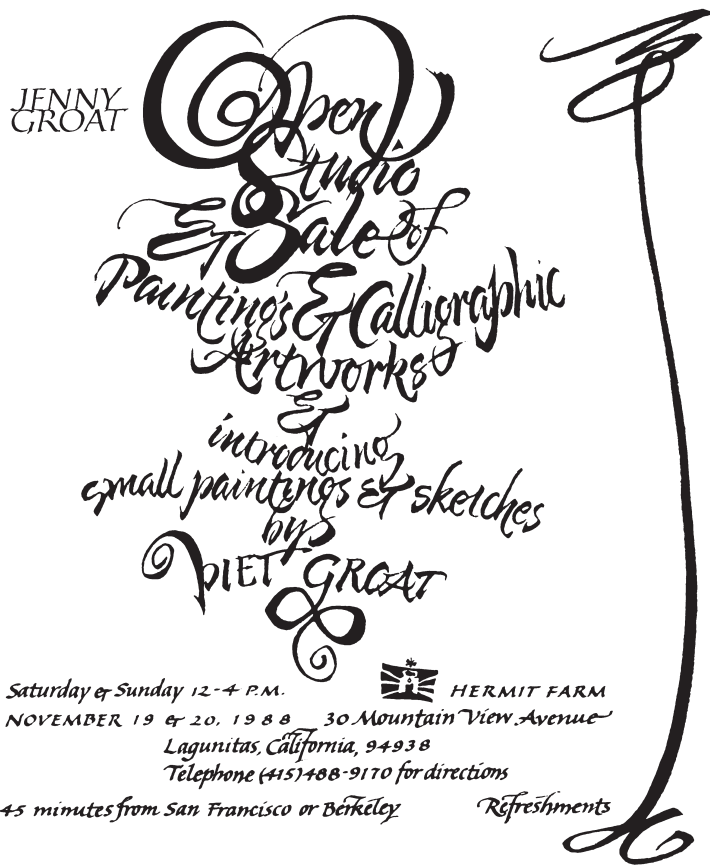 JENNY
GROAT
Open
Studio
& Sale of
Paintings & Calligraphic
Artworks
&
introducing
small paintings & sketches
by
PIET GROAT
Saturday & Sunday 12-4 P.M.
HERMIT FARM
NOVEMBER 19 & 20, 1988
30 Mountain View Avenue
Lagunitas, California, 94938
Telephone (415) 488-9170 for directions
45 minutes from San Francisco or Berkeley
Refreshments